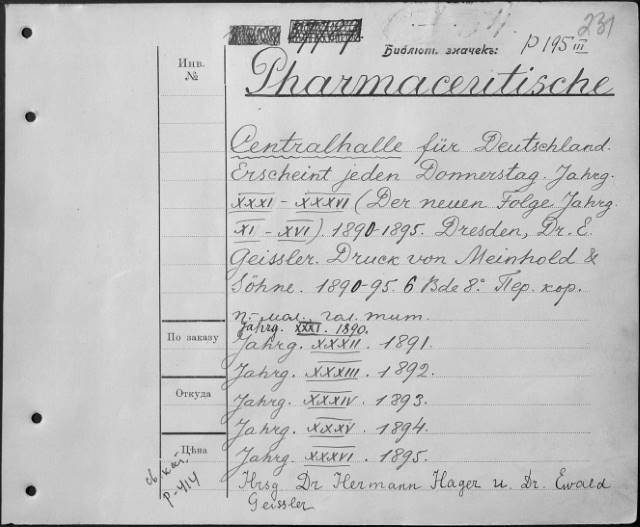 231
Библіот. значекъ: P 195 III
Инв.
№
Pharmaceutische
Centralhalle für Deutschland.
Erscheint jeden Donnerstag. Jahrg.
XXXI - XXXVI (Der neuen Folge Jahrg.
XI - XVI) 1890-1895. Dresden, Dr. E.
Geissler. Druck von Meinhold &
Söhne. 1890-95. 6 Bde 8° Пер. кор.
п. мал. гол. тит.
Jahrg. XXXI. 1890.
По заказу
Jahrg. XXXII. 1891.
Jahrg. XXXIII. 1892.
Откуда
Jahrg. XXXIV. 1893.
Jahrg. XXXV. 1894.
Цѣна
Jahrg. XXXVI. 1895.
Hrsg Dr Hermann Hager u. Dr. Ewald
Geissler
св. кат.
P-414